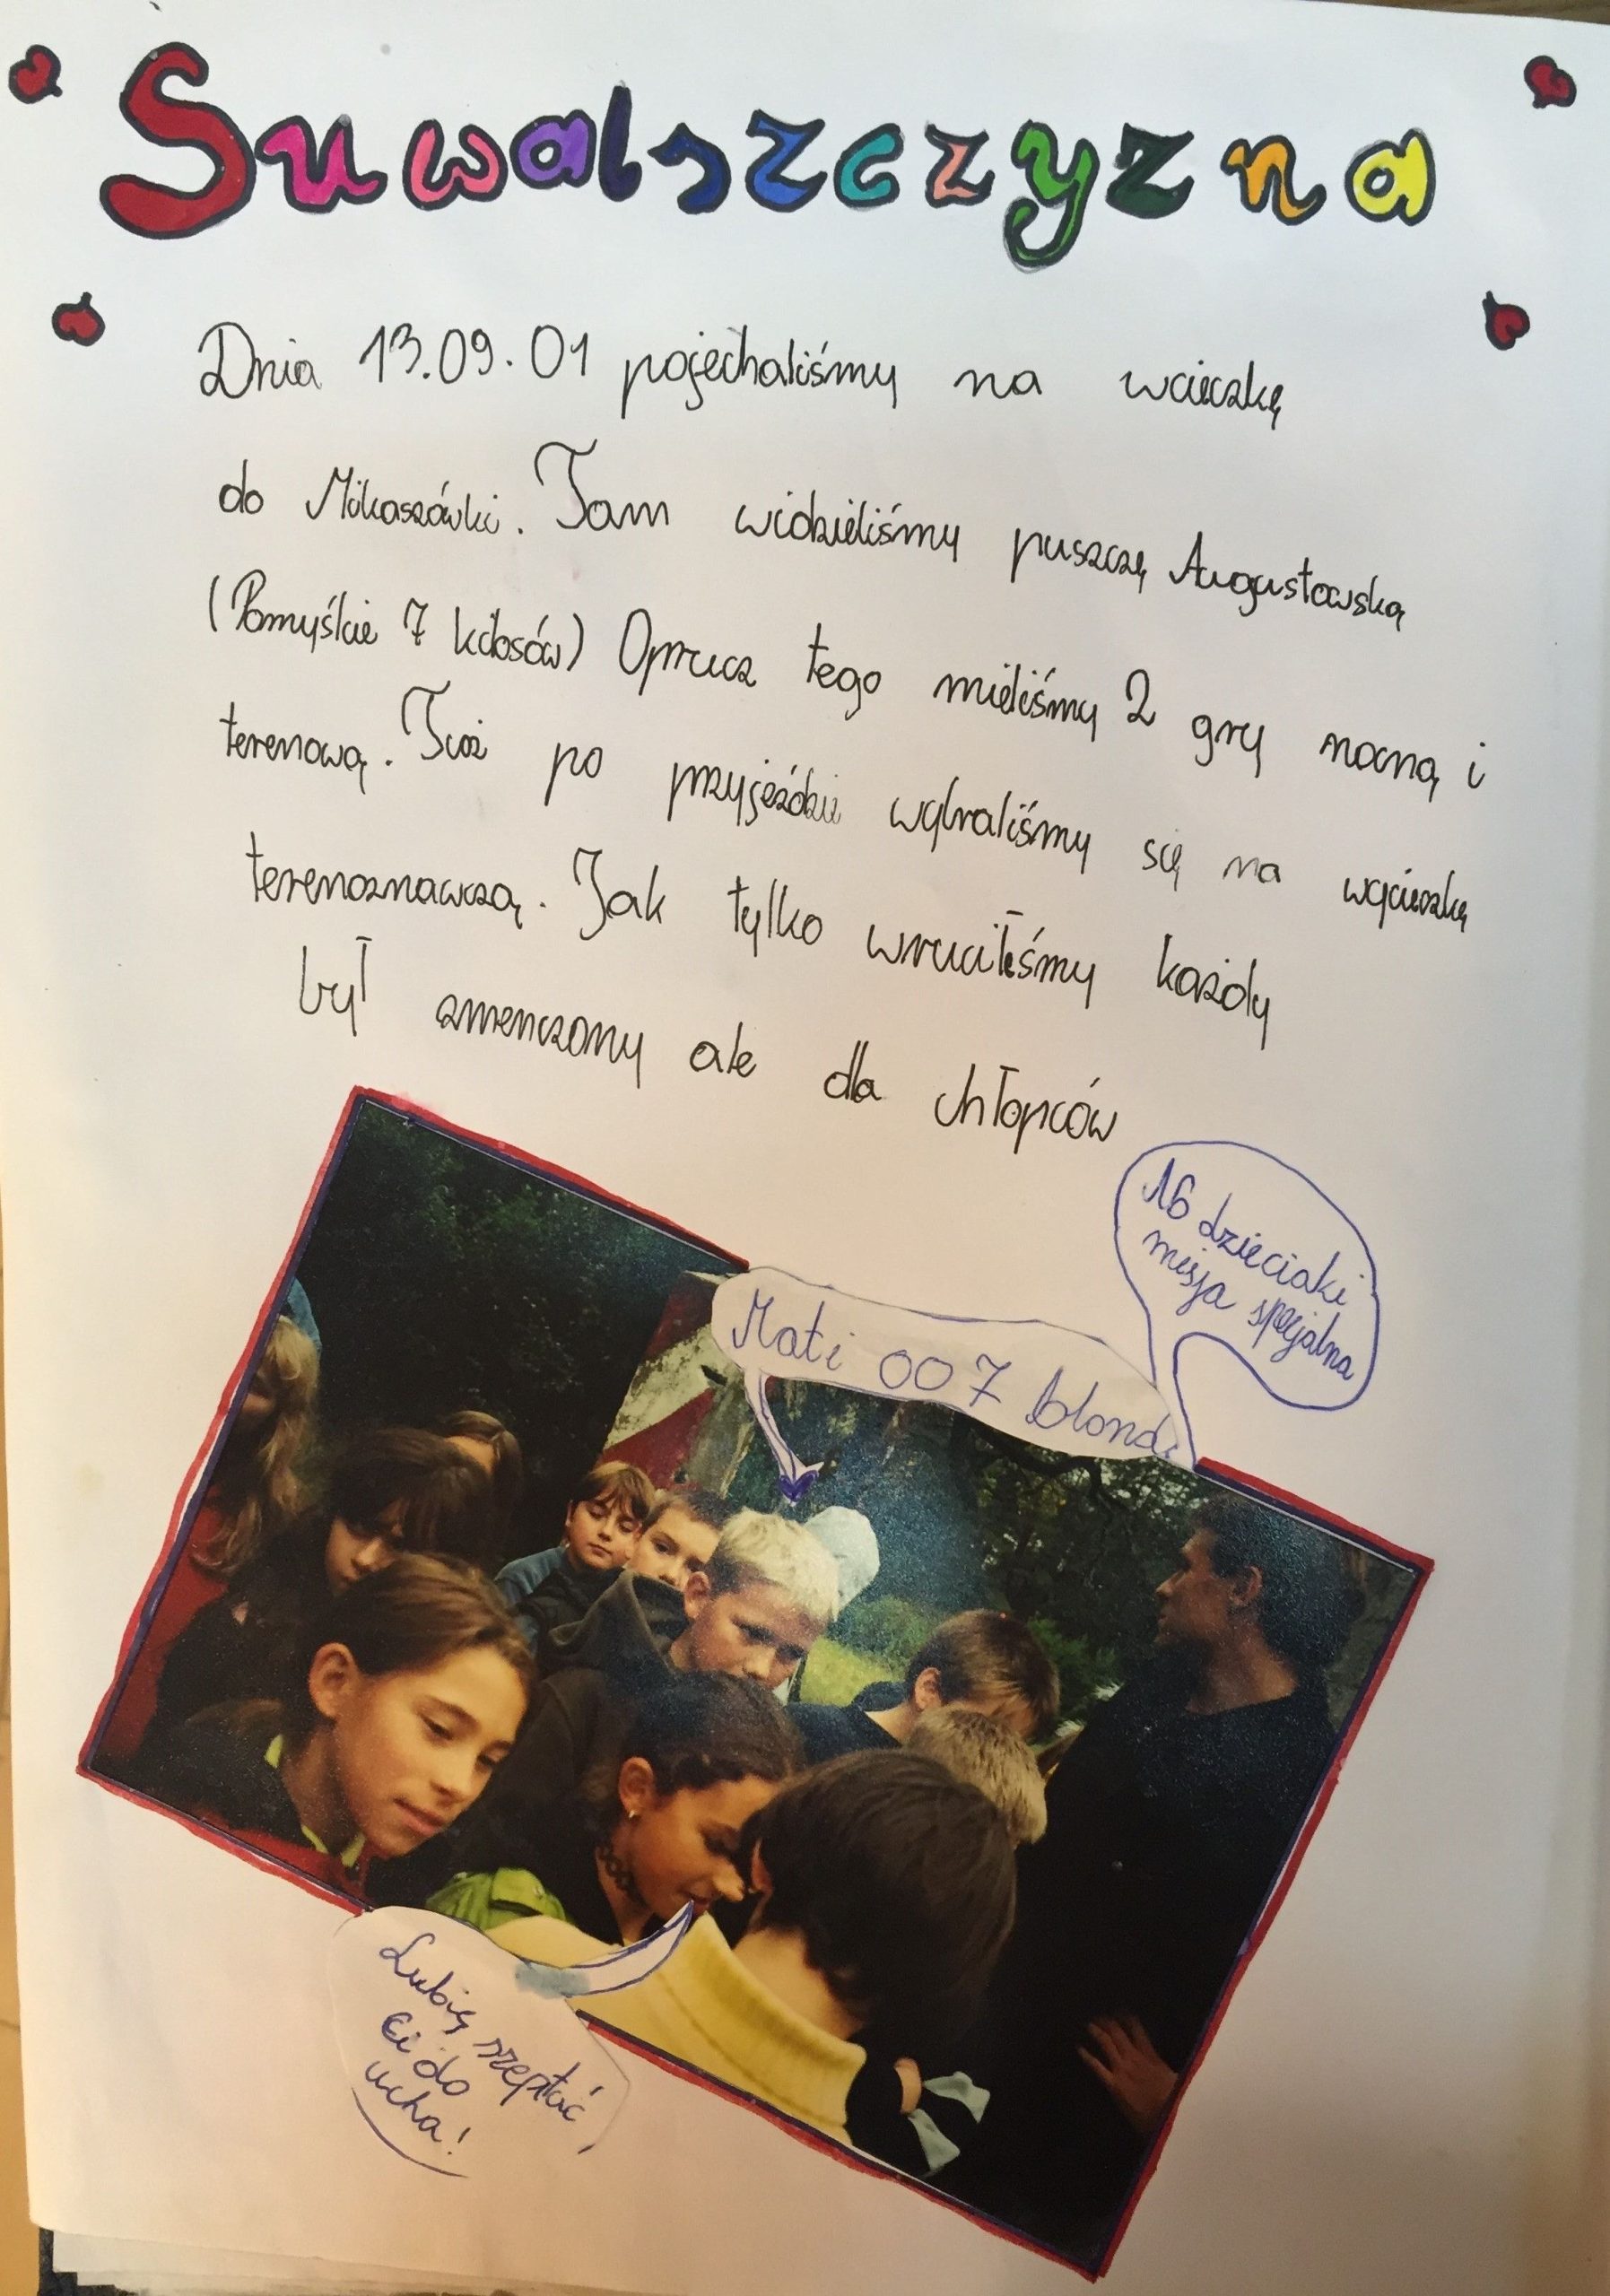 Suwalszczyzna
Dnia 13.09.01 pojechaliśmy na wcieczkę
do Mikaszówki. Tam widzieliśmy puszczę Augustowską
(Pomyślcie 7 kolosów) Oprucz tego mieliśmy 2 gry nocną i
terenową. Tuż po przyjeździe wybraliśmy się na wycieczkę
terenoznawczą. Jak tylko wruciliśmy każdy
był zmenczony ale dla chłopców
16 dzieciaki
misja specjalna
Mati 007 blond
Lubię szeptać
ci do
ucha!